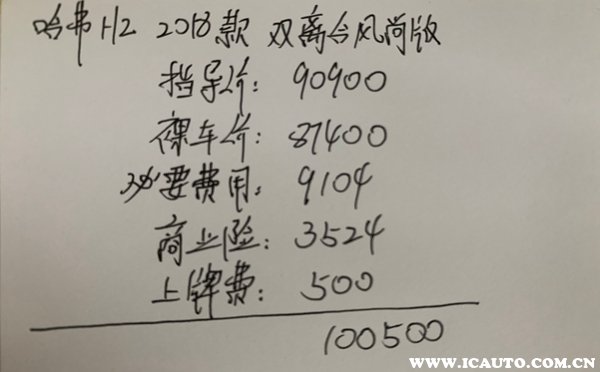 哈弗H2 2018款 双离合风尚版
指导价: 90900
裸车价: 87400
必要费用: 9104
商业险: 3524
上牌费: 500
100500
WWW.ICAUTO.COM.CN